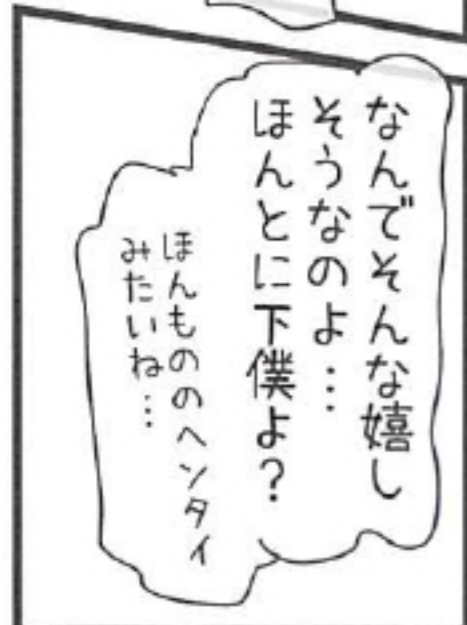 なんでそんな嬉し
そうなのよ…
ほんとに下僕よ？
ほんもののヘンタイ
みたいね…